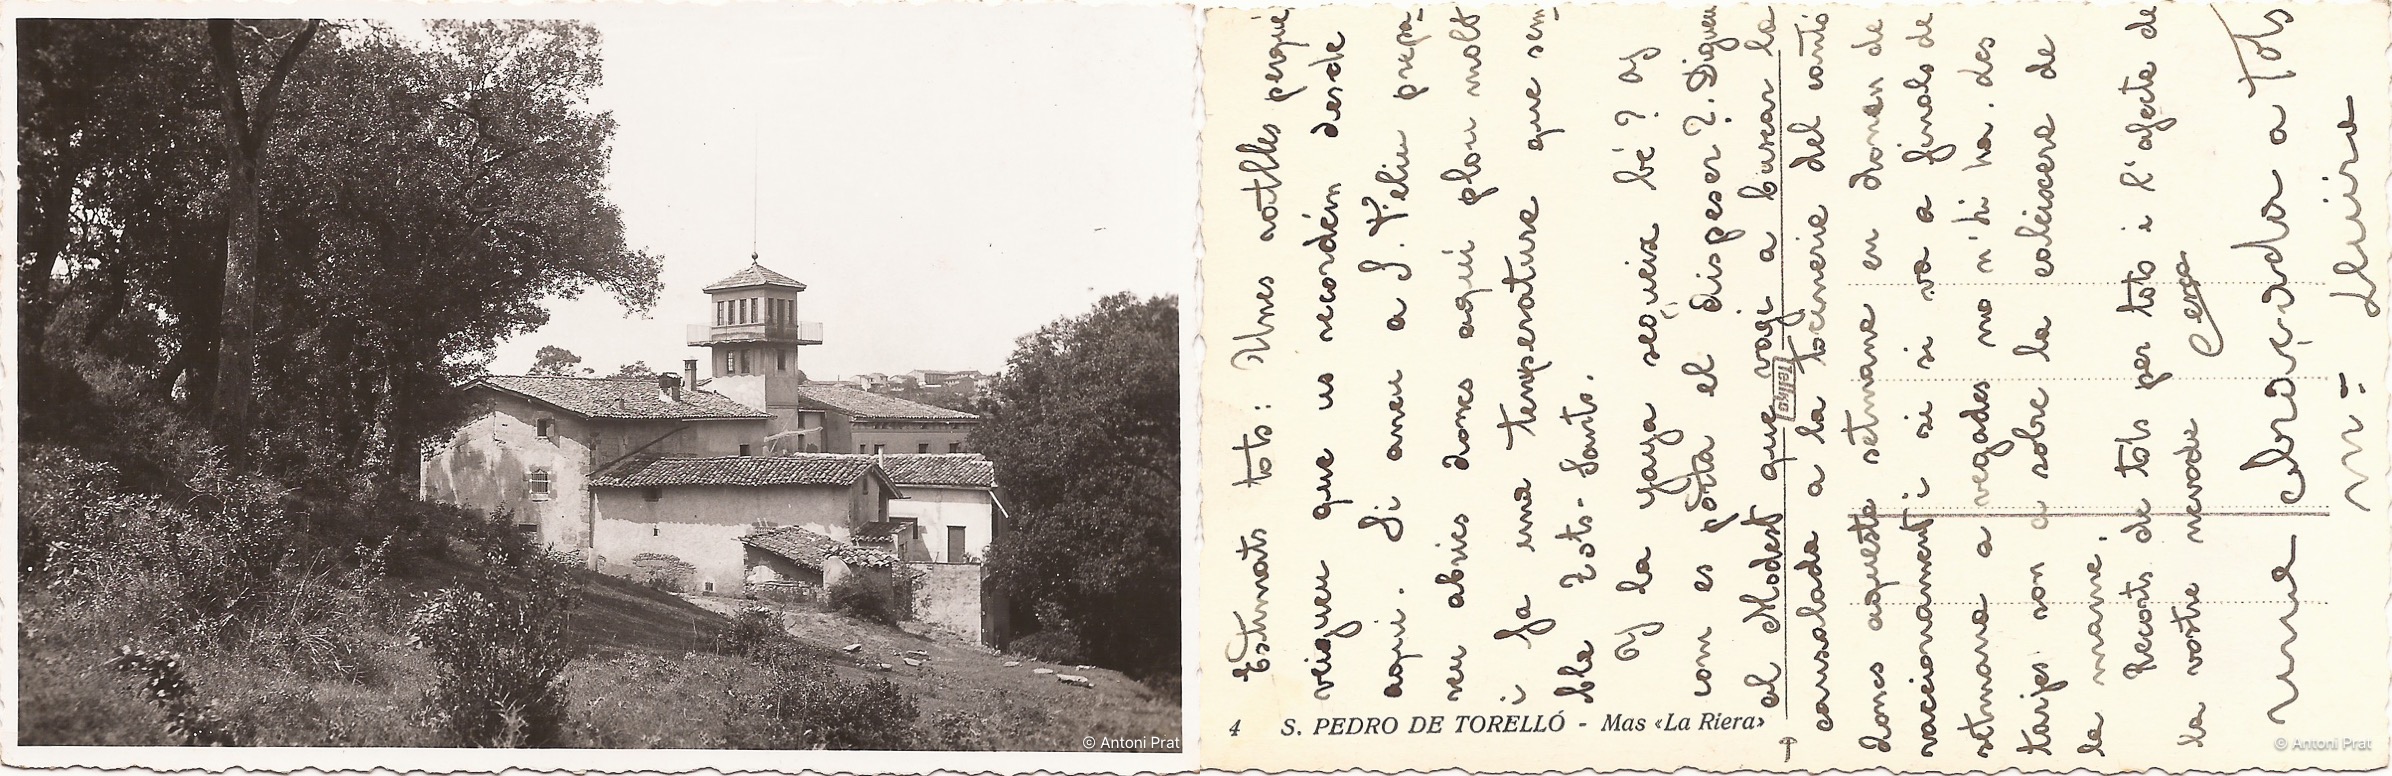 Estimats tots: Unes ratlles perqué
veigueu que us recordém desde
aqui. Si aneu a S. Feliu prepa-
reu abrics dones aquí plou molt
i fa una temperatura que sem-
bla Tots-Sants.
Oy la yaya segueix bé? Oy
com es porta el disposer?. Digueu
al Modest que vagi a buscar la
cansalada a la tocineria del cantó
dones aquesta setmana en donen de
racionament i si si va a finals de
setmana a vegades no n'hi ha. des
tarjes son a sobre la caleixera de
la mama.
Recorts de tots per tots i l'afecte de
la vostre nevoda
una abraçada a tots
Mª Lluïsa
Tellko
4 S. PEDRO DE TORELLÓ - Mas «La Riera»
© Antoni Prat
© Antoni Prat